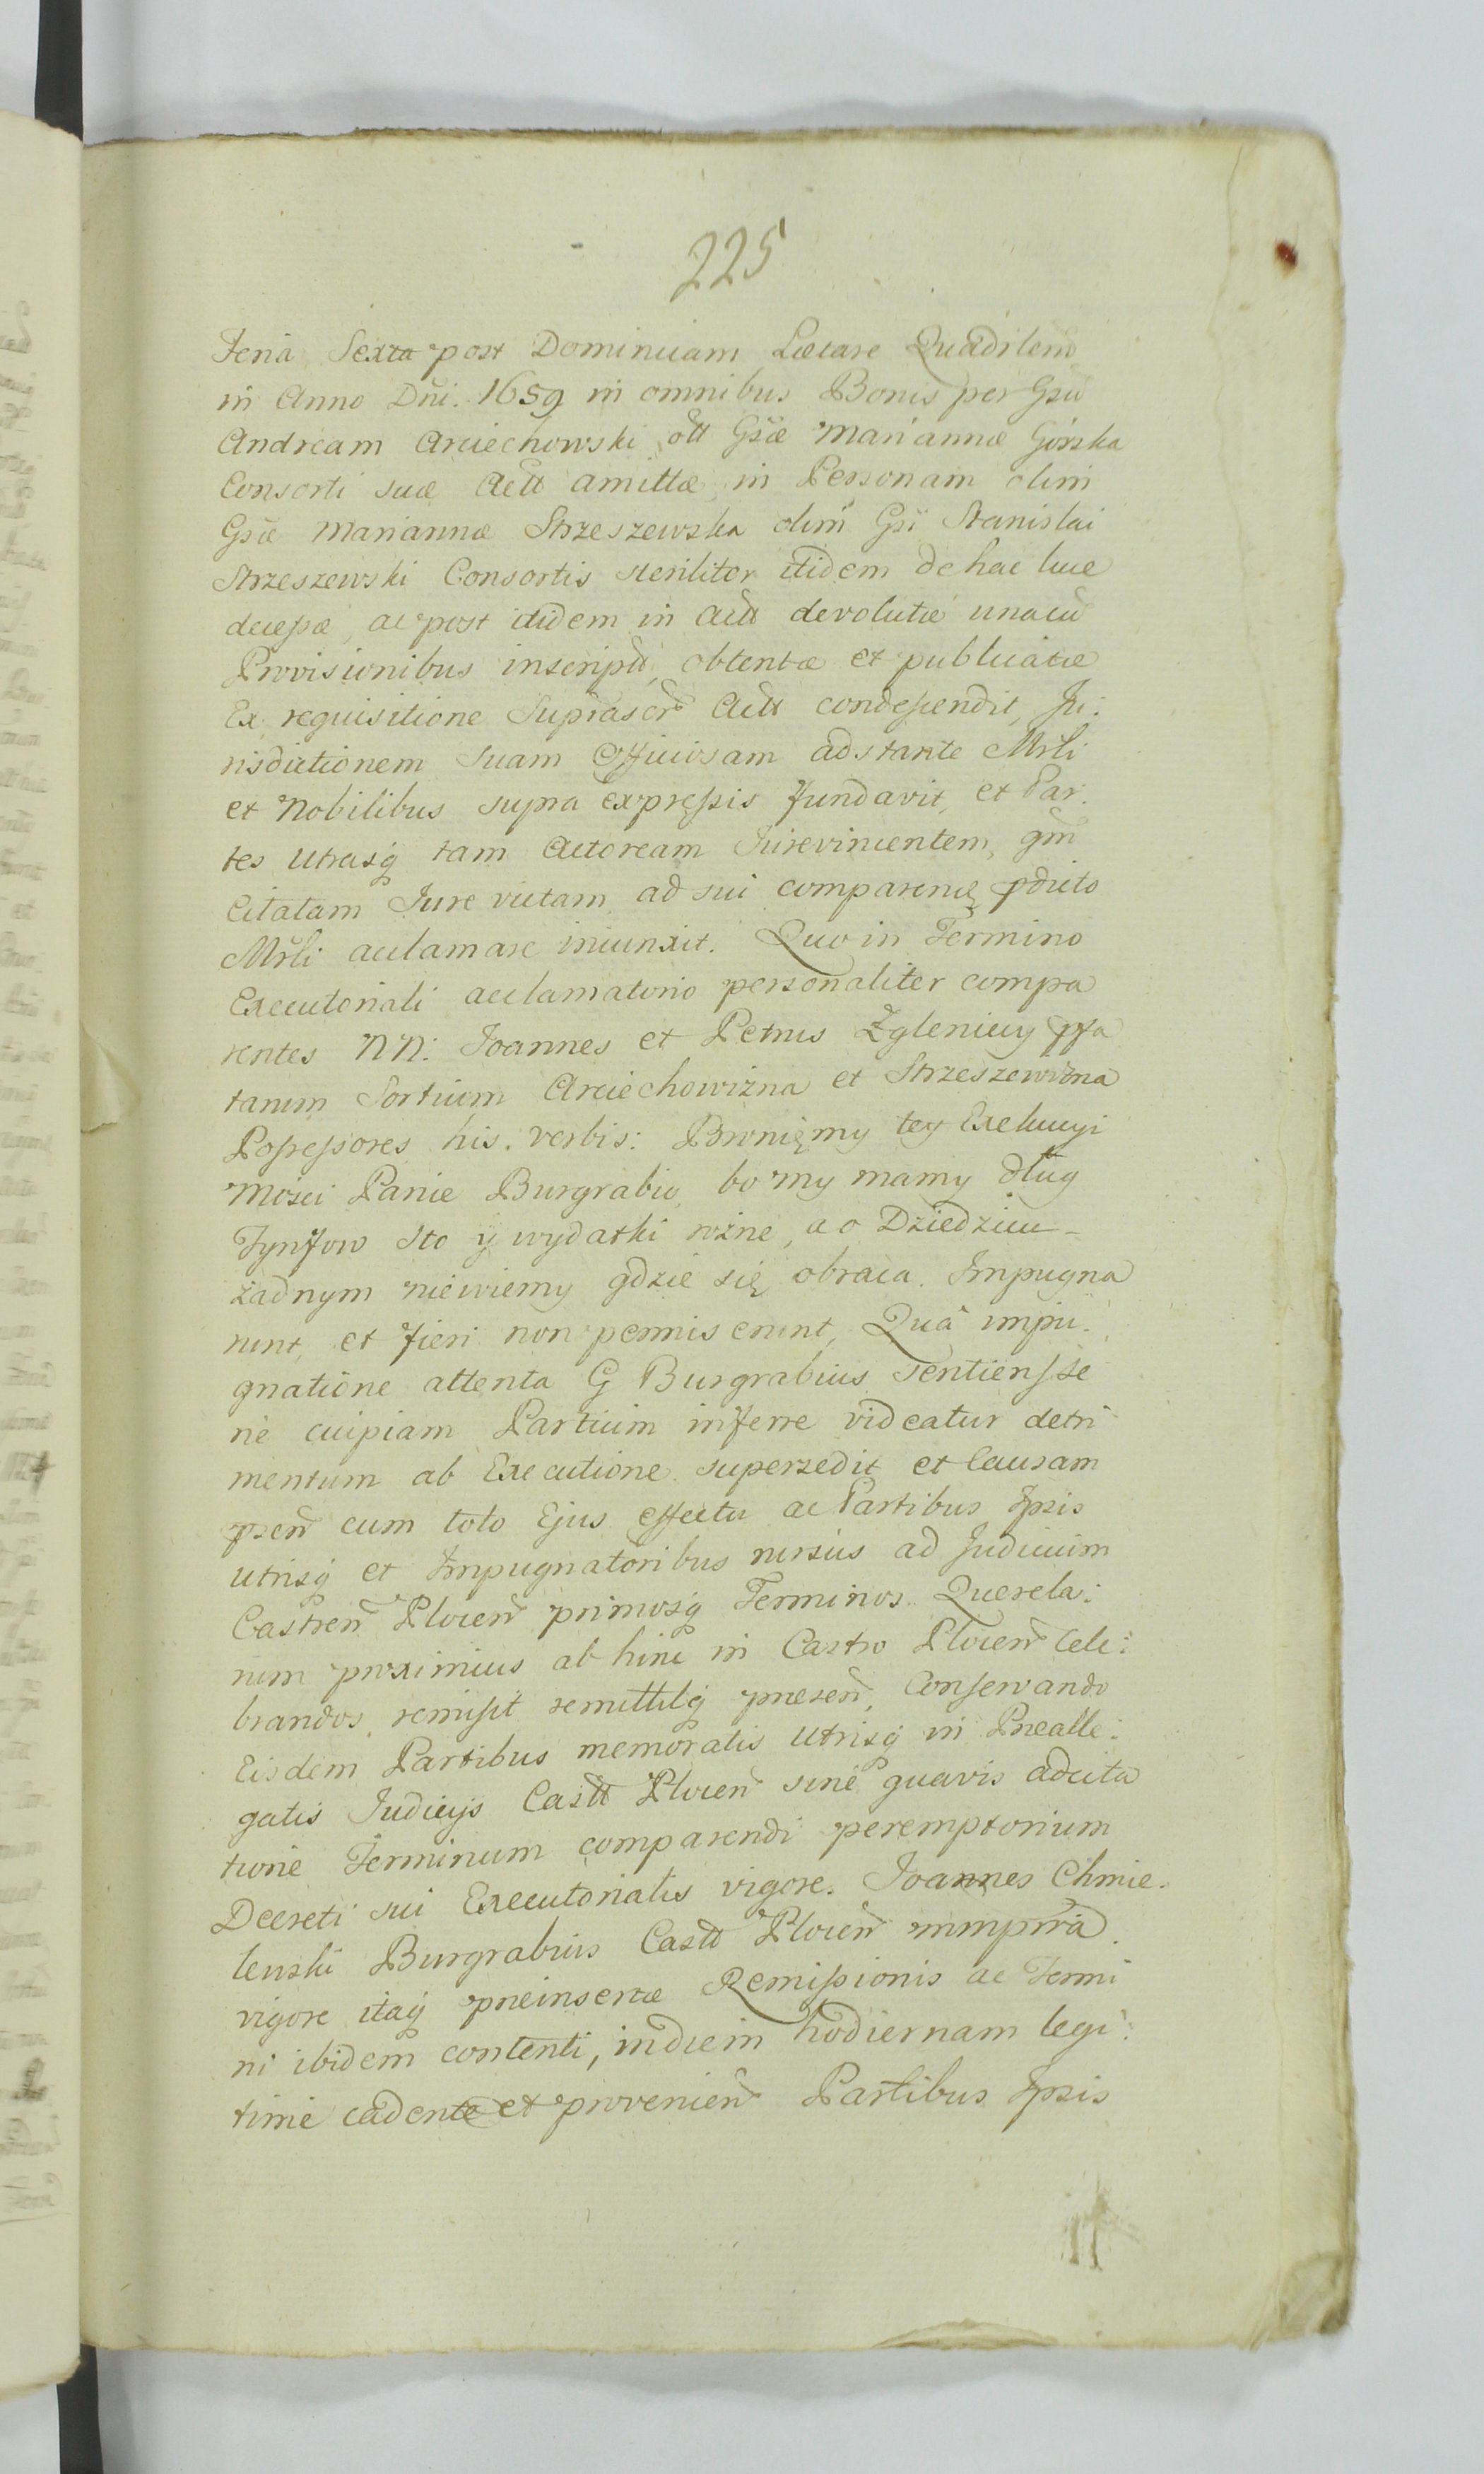 225
Feria Sexta post Dominicam Lætare Quadrlem̃
in Anno Dñi. 1659 in omnibus Bonis per Gsũ
Andream Arciechowski ołł Gsæ Mariannæ Górska
Consorti suæ Actt amittæ in Personam olim
Gsæ Mariannæ Strzeszewska olim Gsi Stanislai
Strzeszewski Consortis steriliter itidem de hac luce
decessæ, ac post itidem in Actt devolutæ unacũ
Provisionibus inscript, obtentæ et publicatæ
Ex requisitione Suprascr̃ Actt condescendit, Ju:
risdictionem suam Officiosam adstante Mrli
et Nobilibus supra expressis fundavit, et Par:
tes utrasq̃ tam Actoream Jurevincentem, qm̃
Citatam Jure victam ad sui comparenę pdicto
Mrli acclamare iniunxit. Quo in Termino
Executoriali acclamatorio personaliter compa
rentes NN. Joannes et Petrus Zgleniccy pfa
tarum Sortium Arciechowizna et Strzeszewizna
Possessores his. verbis: Bronięmy tey Exekucyi
Mości Panie Burgrabio, bo my mamy dług
Tynfow sto ÿ wydatki rożne, a o Dziedzicu
żadnym niewiemy gdzie się obraca. Impugna
runt, et fieri non permiserunt, Quâ impu:
gnatione attenta G Burgrabius Sentiens se
ne cuipiam Partium inferre videatur detri
mentum ab Executione supersedit et Causam
psen̄ cum toto Ejus effectu ac Partibus Ipsis
utrisq̃ et Impugnatoribus rursus ad Judicium
Castren̄ Plocen̄ primosq̃ Terminos Querela:
rum proximius ab hinc in Castro Plocen̄ cele:
brandos, remisit remittitq̃ presen̄, Conservando
Eisdem Partibus memoratis utrisq̃ in Prealle:
gatis Judicijs Castt Plocen̄ sine quavis adcita
tione Terminum comparendi peremptorium
Decreti sui Executorialis vigore. Joannes Chmie:
lenski Burgrabius Castt Plocen̄ mmppria.
vigore itaq̃ preinsertæ Remissionis ac Termi
ni ibidem contenti, in diem hodiernam legi:
time cadente et provenien̄ Partibus Ipsis